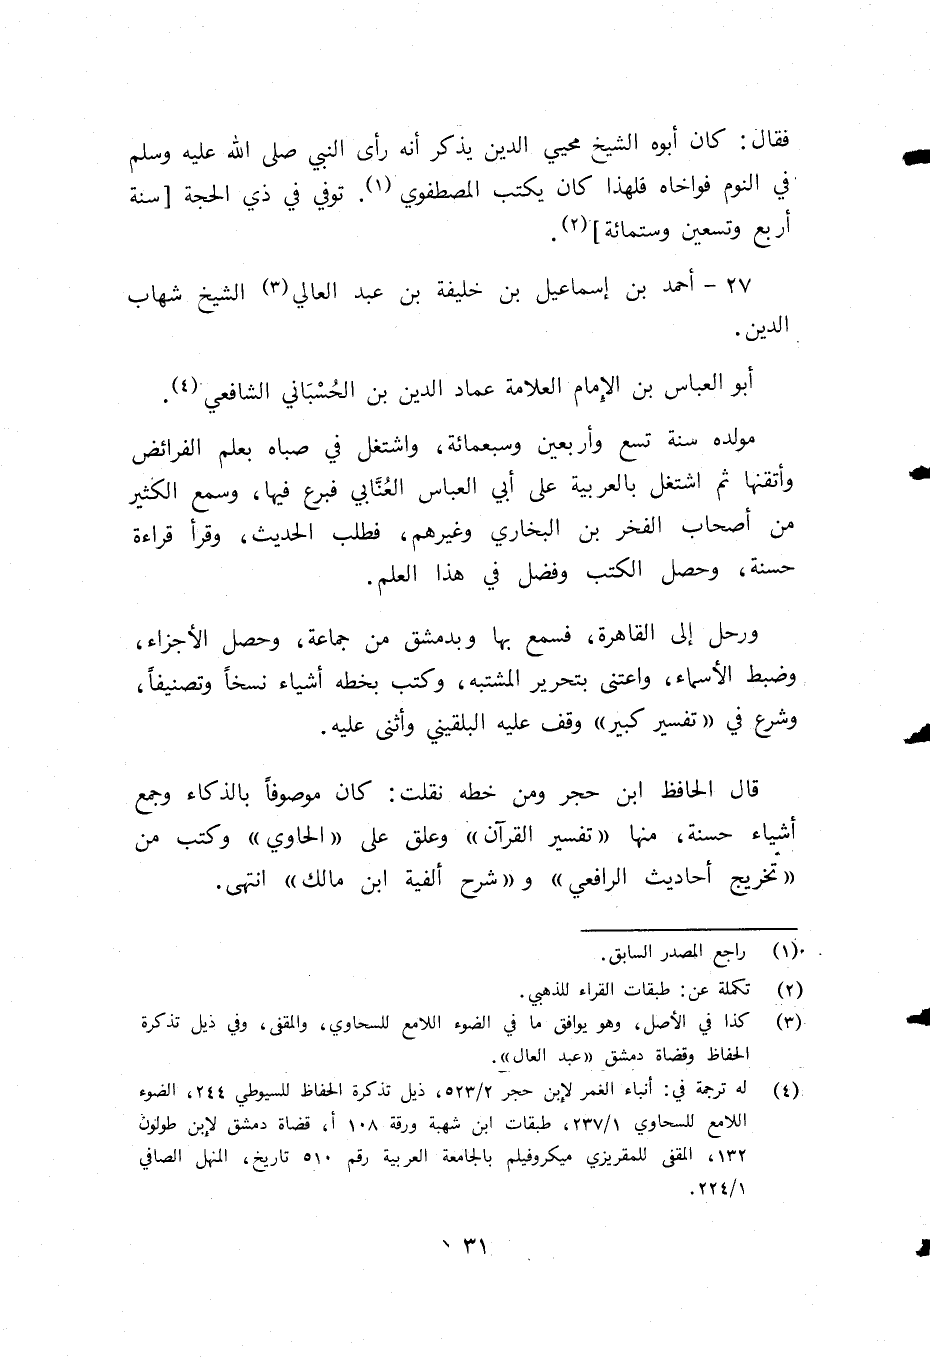 فقال: كان أبوه الشيخ محيي الدين يذكر أنه رأى النبي صلى الله عليه وسلم
في النوم فواخاه فلهذا كان يكتب المصطفوي (١). توفي في ذي الحجة [سنة
أربع وتسعين وستمائة] (٢).
٢٧ - أحمد بن إسماعيل بن خليفة بن عبد العالي (٣) الشيخ شهاب
الدين.
أبو العباس بن الإمام العلامة عماد الدين بن الحُسْبَاني الشافعي (٤).
مولده سنة تسع وأربعين وسبعمائة، واشتغل في صباه بعلم الفرائض
وأتقنها ثم اشتغل بالعربية على أبي العباس العُنَّابي فبرع فيها، وسمع الكثير
من أصحاب الفخر بن البخاري وغيرهم، فطلب الحديث، وقرأ قراءة
حسنة، وحصل الكتب وفضل في هذا العلم.
ورحل إلى القاهرة، فسمع بها وبدمشق من جماعة، وحصل الأجزاء،
وضبط الأسماء، واعتنى بتحرير المشتبه، وكتب بخطه أشياء نسخاً وتصنيفاً،
وشرع في «تفسير كبير» وقف عليه البلقيني وأثنى عليه.
قال الحافظ ابن حجر ومن خطه نقلت: كان موصوفاً بالذكاء وجمع
أشياء حسنة، منها «تفسير القرآن» وعلق على «الحاوي» وكتب من
«تخريج أحاديث الرافعي» و «شرح ألفية ابن مالك» انتهى.
(١) راجع المصدر السابق.
(٢) تكملة عن: طبقات القراء للذهبي.
(٣) كذا في الأصل، وهو يوافق ما في الضوء اللامع للسحاوي، والمقفى، وفي ذيل تذكرة
الحفاظ وقضاة دمشق «عبد العال».
(٤) له ترجمة في: أنباء الغمر لإبن حجر ٥٢٣/٢، ذيل تذكرة الحفاظ للسيوطي ٢٤٤، الضوء
اللامع للسحاوي ٢٣٧/١، طبقات ابن شهبة ورقة ١٠٨ أ، قضاة دمشق لإبن طولون
١٣٢، المقفى للمقريزي ميكروفيلم بالجامعة العربية رقم ٥١٠ تاريخ، المنهل الصافي
٢٢٤/١.
٣١